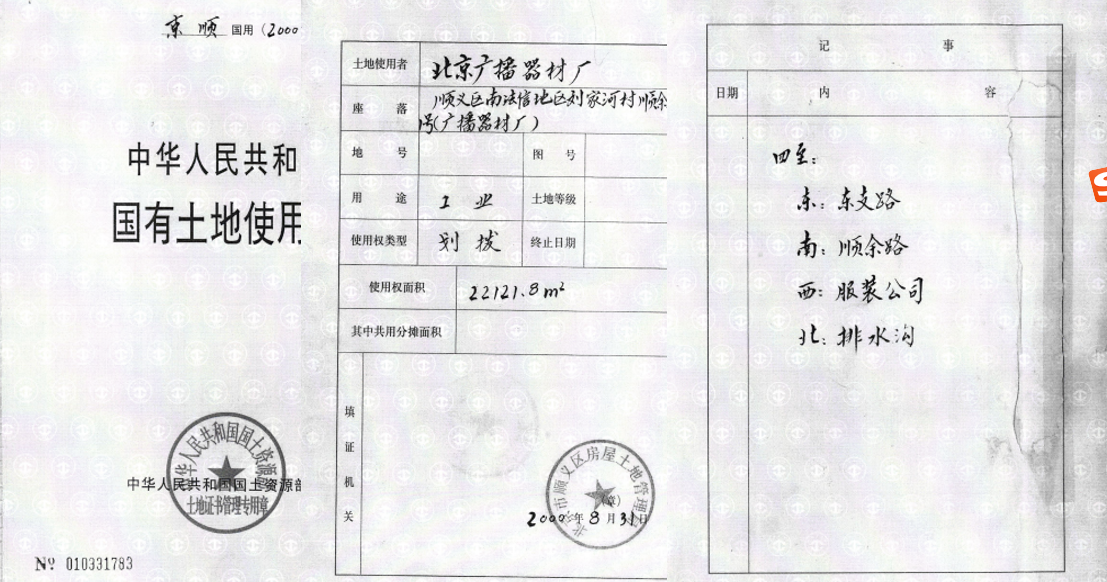 京 顺 国用（2000
中华人民共和
国有土地使用
中华人民共和国国土资源部
土地证书管理专用章
中华人民共和国国土资源部
Nº 010331783
土地使用者 北京广播器材厂
座 落 顺义区南法信地区刘家河村顺余
号(广播器材厂)
地 号 图 号
用 途 工 业 土地等级
使用权类型 划 拨 终止日期
使用权面积 22121.8m²
其中共用分摊面积
填证机关
北京市顺义区房屋土地管理局
(章)
2000年8月31日
记 事
日期 内 容
四至:
东: 东支路
南: 顺余路
西: 服装公司
北: 排水沟